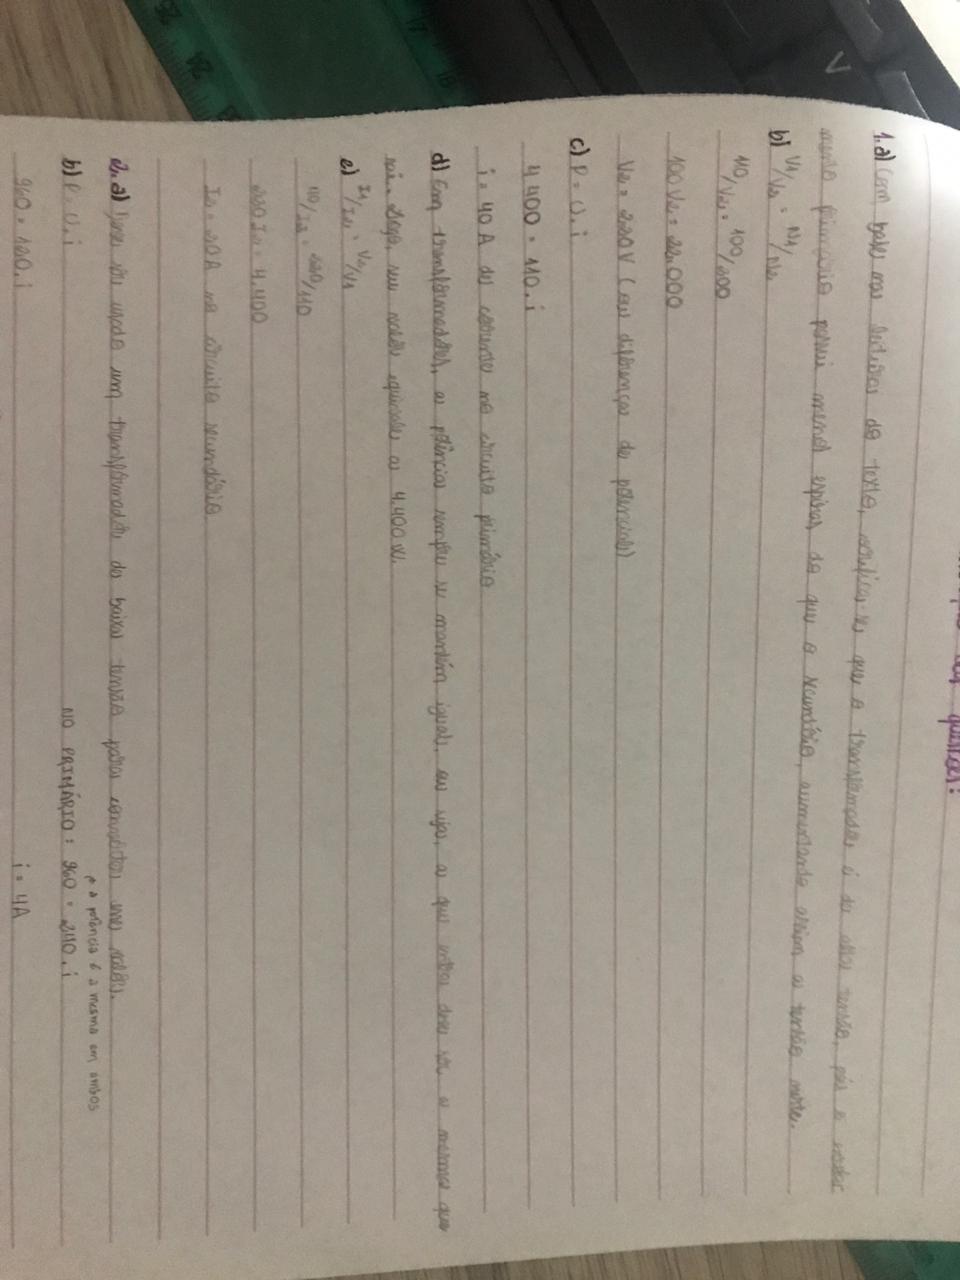 questões:
1. a) Com base nas leituras do texto, verifica-se que o transformador é de alta tensão, pois o enrola-
mento primário possui menos espiras do que o secundário, aumentando assim a tensão neste.
b) V1/V2 = N1/N2
110/V2 = 100/200
100 V2 = 22.000
V2 = 220 V (ou diferença de potencial)
c) P = U.i
4 400 = 110.i
i = 40 A de corrente no circuito primário
d) Em transformadores, a potência sempre se mantém igual, ou seja, a que entra deve ser a mesma que
sai. Logo, seu valor equivale a 4.400 W.
e) I1/I2 = V2/V1
40/I2 = 220/110
220 I2 = 4.400
I2 = 20A no circuito secundário
2. a) ser usado um transformador de baixa tensão para converter
→ a potência é a mesma em ambos
b) P = U.i NO PRIMÁRIO: 960 = 240.i
960 = 120.i i = 4A